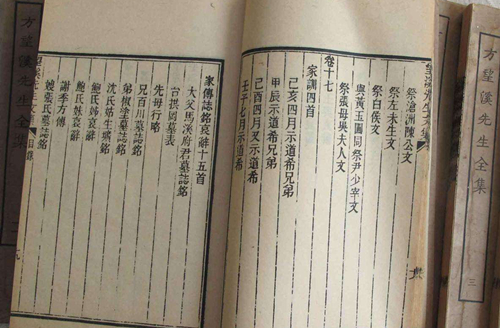 方望溪先生全集
三
祭滄洲陳公文
祭左未生文
祭白侯文
與黃玉圃同祭尹少宰文
祭張母吳夫人文
卷十七
家訓四首
己亥四月示道希兄弟
甲辰示道希兄弟
己酉四月又示道希
壬子七月示道希
家傳誌銘哀辭十五首
大父馬溪府君墓誌銘
台拱岡墓表
先母行略
兄百川墓誌銘
弟椒塗墓誌銘
沈氏姑生壙銘
鮑氏姊哀辭
鮑氏妹哀辭
謝季方傳
嫂張氏墓誌銘
目錄
方望溪先生全集